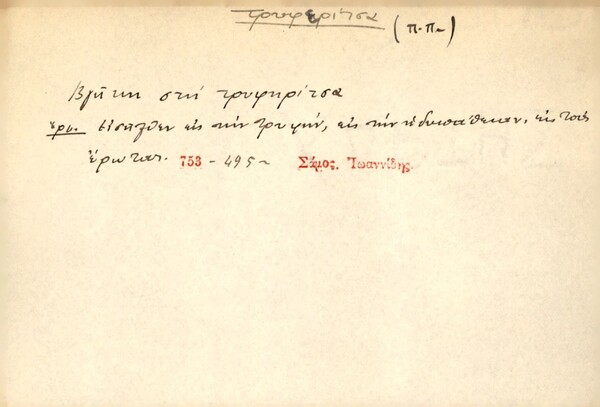 τρυφερίτσα (π.π.)
Βγῆκε στὴ τρυφηρίτσα
ἑρμ. Εἰσῆλθεν εἰς τὴν τρυφήν, εἰς τὴν ἡδυπάθειαν, εἰς τοὺς
ἔρωτας. 753 - 495 Σάμος. Ἰωαννίδης